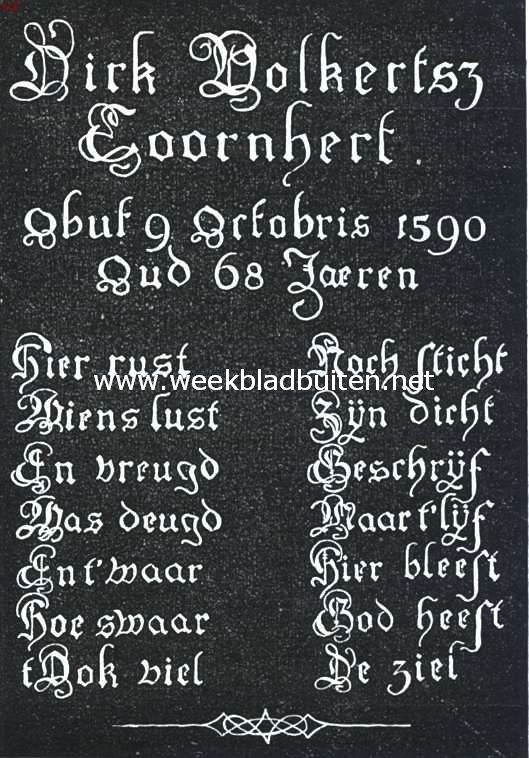 Dirk Volkertsz
Coornhert.
Obut 9 Octobris 1590
Oud 68 Jaeren
Hier rust
Wiens lust
En vreugd
Was deugd
En t'waar
Hoe swaar
t'Ook viel
Noch sticht
Zÿn dicht
Geschrÿf
Maar t'lÿf
Hier bleeft
God heeft
De ziel
www.weekbladbuiten.net